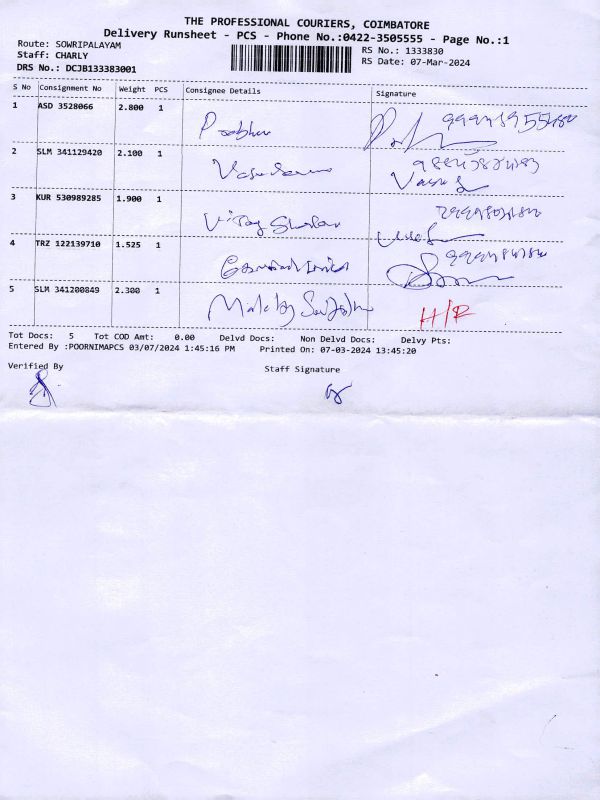 THE PROFESSIONAL COURIERS, COIMBATORE
Delivery Runsheet - PCS - Phone No.:0422-3505555 - Page No.:1
Route: SOWRIPALAYAM
RS No.: 1333830
Staff: CHARLY
RS Date: 07-Mar-2024
DRS No.: DCJB133383001
S No Consignment No Weight PCS Consignee Details Signature
1 ASD 3528066 2.800 1 Prabhu
2 SLM 341129420 2.100 1
3 KUR 530989285 1.900 1 Vijay
4 TRZ 122139710 1.525 1
5 SLM 341200849 2.300 1 H/R
Tot Docs: 5 Tot COD Amt: 0.00 Delvd Docs: Non Delvd Docs: Delvy Pts:
Entered By :POORNIMAPCS 03/07/2024 1:45:16 PM Printed On: 07-03-2024 13:45:20
Verified By Staff Signature